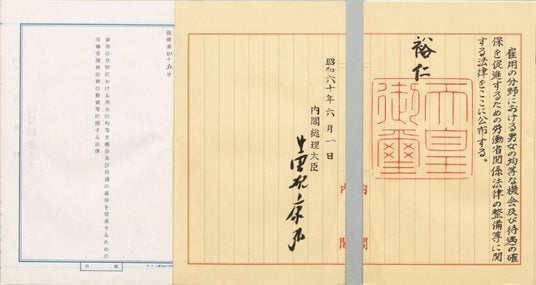 雇用の分野における男女の均等な機会及び待遇の確
保を促進するための労働省関係法律の整備等に関
する法律をここに公布する。
裕仁
天皇
御璽
昭和六十年六月一日
内閣総理大臣
中曽根康弘
内閣
内閣
法律第四十五号
雇用の分野における男女の均等な機会及び待遇の確保を促進するための
労働省関係法律の整備等に関する法律
内閣